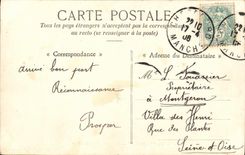 CARTE POSTALE
Tous les pays étrangers n'acceptent pas la correspondance
au recto (se renseigner à la poste)
Correspondance
Adresse du Destinataire
22 10
17 - 4
08
MANCHE
arrive bon port
Reconnaissance
Prosper
M. L.
Propriétaire
à Montgeron
Villa des Henri
Rue des Plantes
Seine et Oise